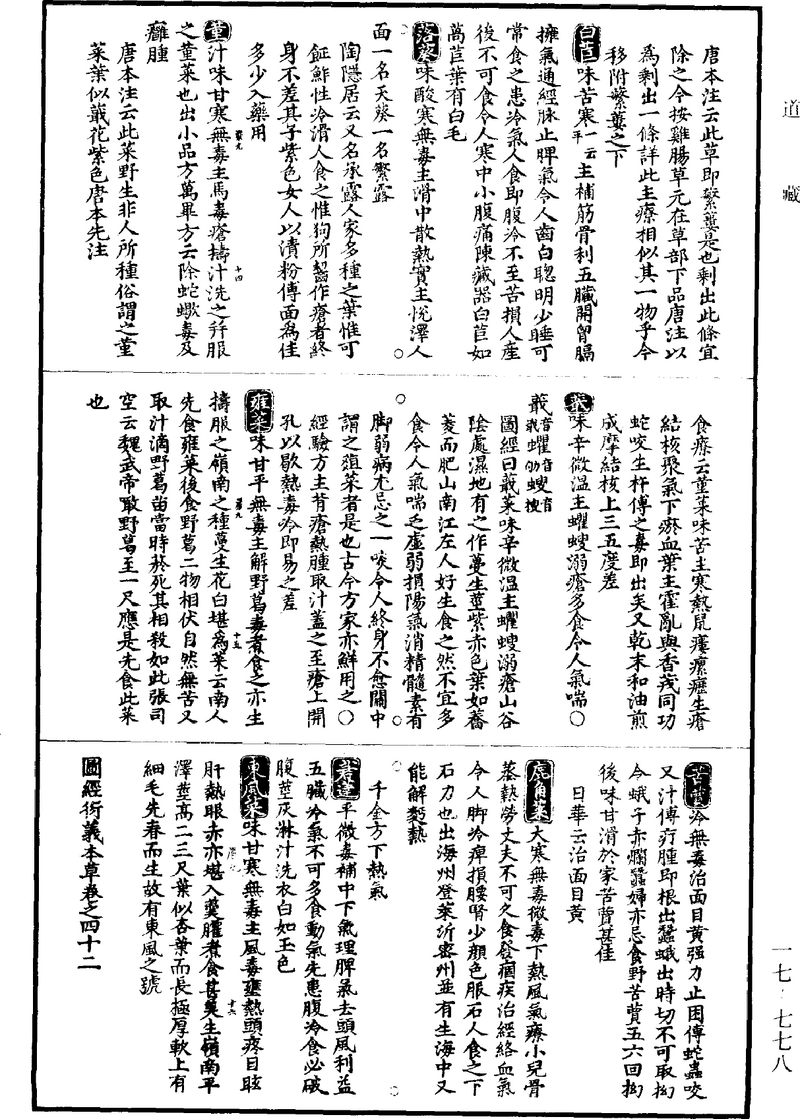 道藏
唐本注云此草即蘩蔞是也剩出此條宜
除之今按雞腸草元在草部下品唐注以
為剩出一條詳此主療相似其一物乎今
移附蘩蔞之下
白苣味苦寒一云平主補筋骨利五臟開胷膈
擁氣通經脉止脾氣令人齒白聦明少睡可
常食之患冷氣人食即腹冷不至苦損人産
後不可食令人寒中小腹痛陳藏器白苣如
萵苣葉有白毛
落葵味酸寒無毒主滑中散熱實主悅澤人
面一名天葵一名繁露
陶隱居云又名承露人家多種之葉惟可
䬦鮓性冷滑人食之惟狗所齧作瘡者終
身不差其子紫色女人以漬粉傅面為佳
多少入藥用
堇汁味甘寒無毒主馬毒瘡擣汁洗之并服
之堇菜也出小品方萬畢方云除蛇蠍毒及
癰腫
唐本注云此菜野生非人所種俗謂之堇
菜葉似蕺花紫色唐本先注
食療云堇菜味苦主寒熱鼠瘻瘰癧生瘡
結核聚氣下瘀血葉主霍亂與香茂同功
蛇咬生杵傅之毒即出矣又乾末和油煎
成摩結核上三五度差
蕺味辛微溫主蠼螋溺瘡多食令人氣喘○
蕺音戢蠼音劬螋音搜
圖經曰蕺菜味辛微溫主蠼螋溺瘡山谷
陰處濕地有之作蔓生莖紫赤色葉如蕎
麥而肥山南江左人好生食之然不宜多
食令人氣喘乏虛弱損陽氣消精髓素有
脚弱病尤忌之一啖令人終身不愈關中
謂之葅菜者是也古今方家亦鮮用之○
經驗方主背瘡熱腫取汁蓋之至瘡上開
孔以歇熱毒冷即易之差
蕹菜味甘平無毒主解野葛毒煮食之亦生
擣服之嶺南之種蔓生花白堪為菜云南人
先食蕹菜後食野葛二物相伏自然無苦又
取汁滴野葛苗當時菸死其相殺如此張司
空云魏武帝噉野葛至一尺應是先食此菜
也
苦蕒冷無毒治面目黃强力止困傅蛇蟲咬
又汁傅疔腫即根出蠶蛾出時切不可取拗
令蛾子赤爛蠶婦亦忌食野苦蕒五六回拗
後味甘滑於家苦蕒甚佳
日華云治面目黃
鹿角菜大寒無毒微毒下熱風氣療小兒骨
蒸熱勞丈夫不可久食發痼疾治經絡血氣
令人脚冷痺損腰腎少顏色服石人食之下
石力也出海州登萊沂密州並有生海中又
能解麪熱
千金方下熱氣
莙薘平微毒補中下氣理脾氣去頭風利益
五臟冷氣不可多食動氣先患腹冷食必破
腹莖灰淋汁洗衣白如玉色
東風菜味甘寒無毒主風毒壅熱頭疼目眩
肝熱眼赤亦堪入羹臛煮食甚美生嶺南平
澤莖高二三尺葉似杏葉而長極厚軟上有
細毛先春而生故有東風之號
圖經衍義本草卷之四十二
一七·七七八